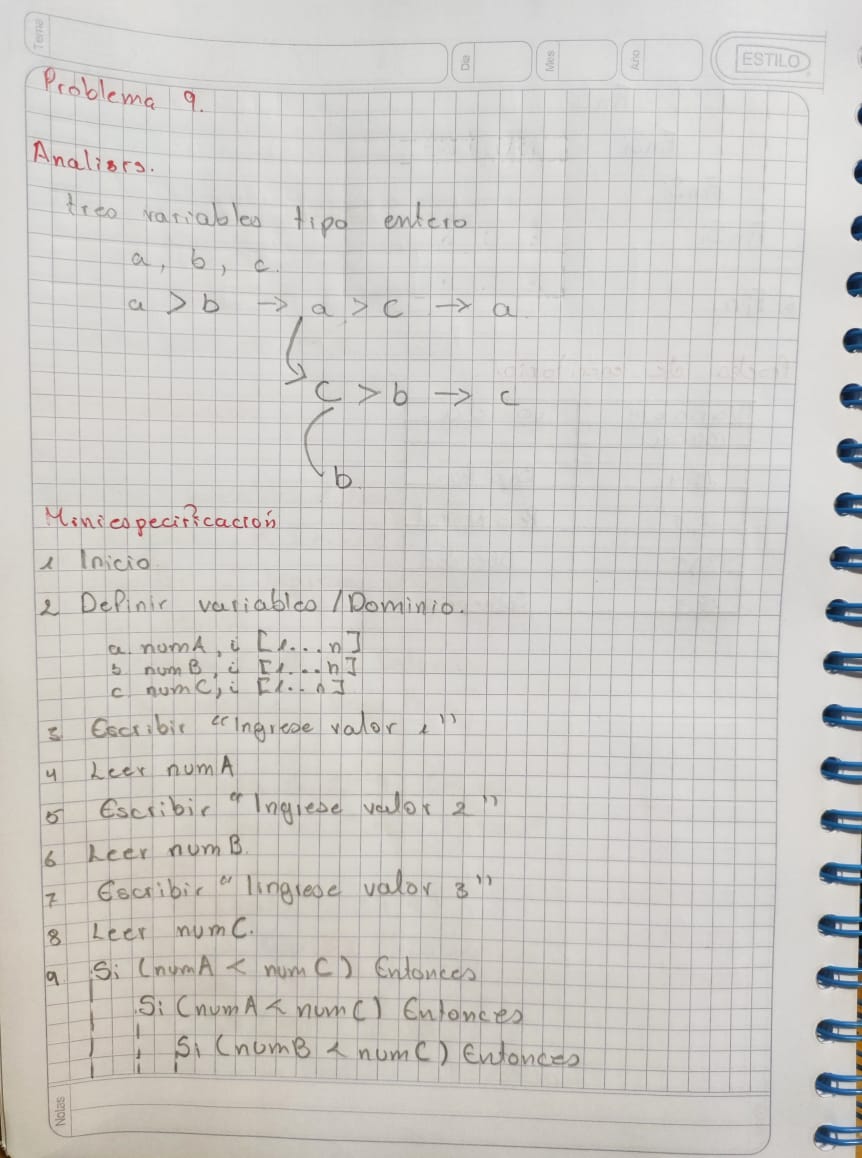 Tema
Dia
Mes
Año
ESTILO
Problema 9.
Analisis.
tres variables tipo entero
a, b, c.
a > b → a > c → a
c > b → c
b
Miniespecificación
1 Inicio
2 Definir variables / Dominio.
a numA, i [1...n]
b numB, i [1...n]
c numC, i [1..n]
3 Escribir "Ingrese valor 1"
4 Leer numA
5 Escribir "Ingrese valor 2"
6 Leer numB.
7 Escribir "Iingrese valor 3"
8 Leer numC.
9 Si (numA < numC) Entonces
Si (numA < numC) Entonces
Si (numB < numC) Entonces
Notas